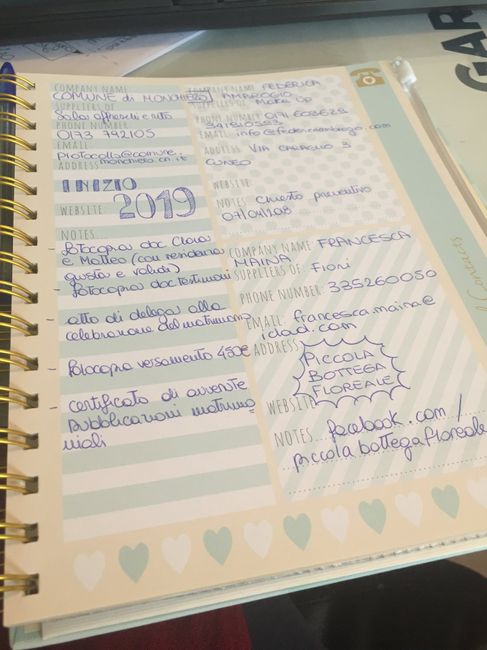 COMPANY NAME
COMUNE di MONCHIERO
SUPPLIERS OF
Sala affreschi e rito
PHONE NUMBER
0173 792105
EMAIL
Protocollo@comune.
ADDRESS monchiero.cn.it
INIZIO
WEBSITE 2019
NOTES...
- fotocopia doc Chiara
e Matteo (con residenza
giusta e valida)
- fotocopia doc testimoni
- atto di delega alla
celebrazione del matrimonio
- fotocopia versamento 450€
- certificato di avvenute
pubblicazioni matrimo
niali
COMPANY NAME FEDERICA
AMBROGIO
SUPPLIERS OF Make Up
PHONE NUMBER 0171 603625
EMAIL info@federicambrogio.com
ADDRESS VIA CARAGLIO 3
CUNEO
WEBSITE
NOTES chiesto preventivo
COMPANY NAME FRANCESCA
MAINA
SUPPLIERS OF Fiori
PHONE NUMBER 335260050
EMAIL francesca.maina@
icloud.com
ADDRESS
PICCOLA
BOTTEGA
FLOREALE
WEBSITE
NOTES... facebook.com/
piccolabottegafloreale
Contacts
GAR